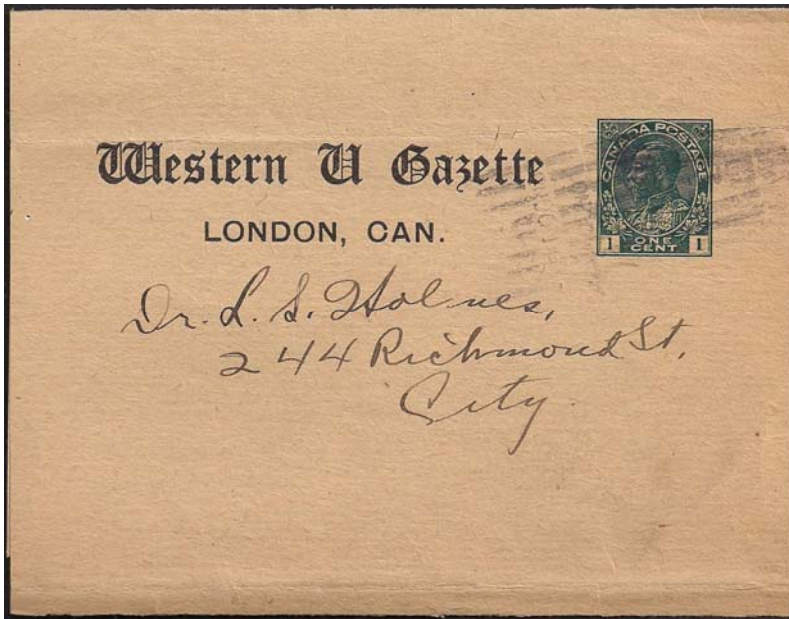 Western U Gazette
LONDON, CAN.
CANADA POSTAGE
1 ONE CENT 1
Dr. L. S. Holmes,
244 Richmond St.
City